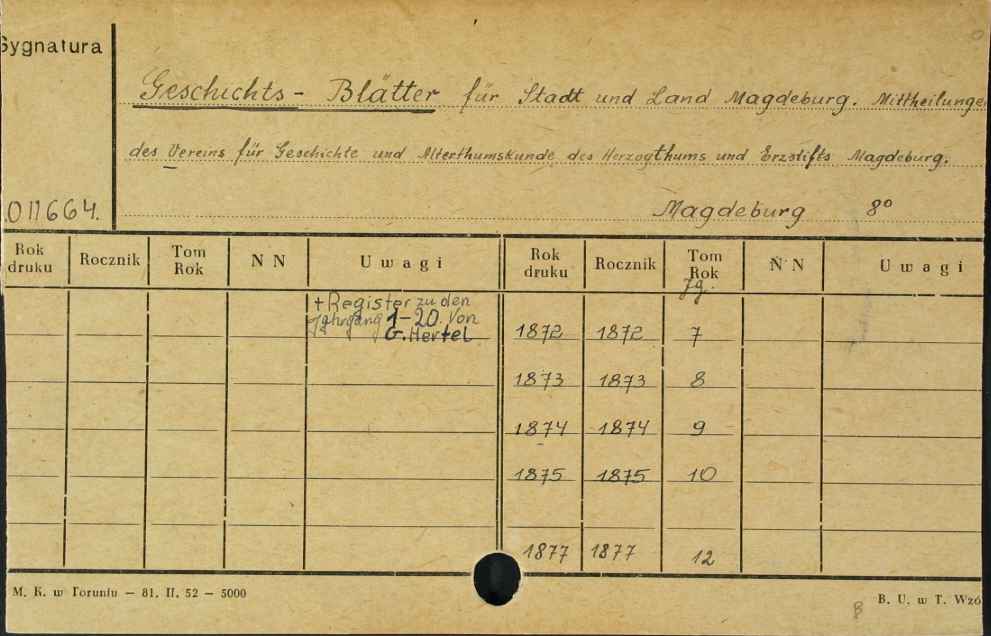 Sygnatura
Geschichts - Blätter für Stadt und Land Magdeburg. Mittheilungen
des Vereins für Geschichte und Alterthumskunde des Herzogthums und Erzstifts Magdeburg.
011664. Magdeburg 8°
Rok druku Rocznik Tom Rok N N Uwagi Rok druku Rocznik Tom Rok N N Uwagi
Jg.
+ Register zu den
Jahrgang 1-20 von
G. Hertel
1872 1872 7
1873 1873 8
1874 1874 9
1875 1875 10
1877 1877 12
M. K. w Toruniu — 81. II. 52 — 5000
8 B. U. w T. Wzó